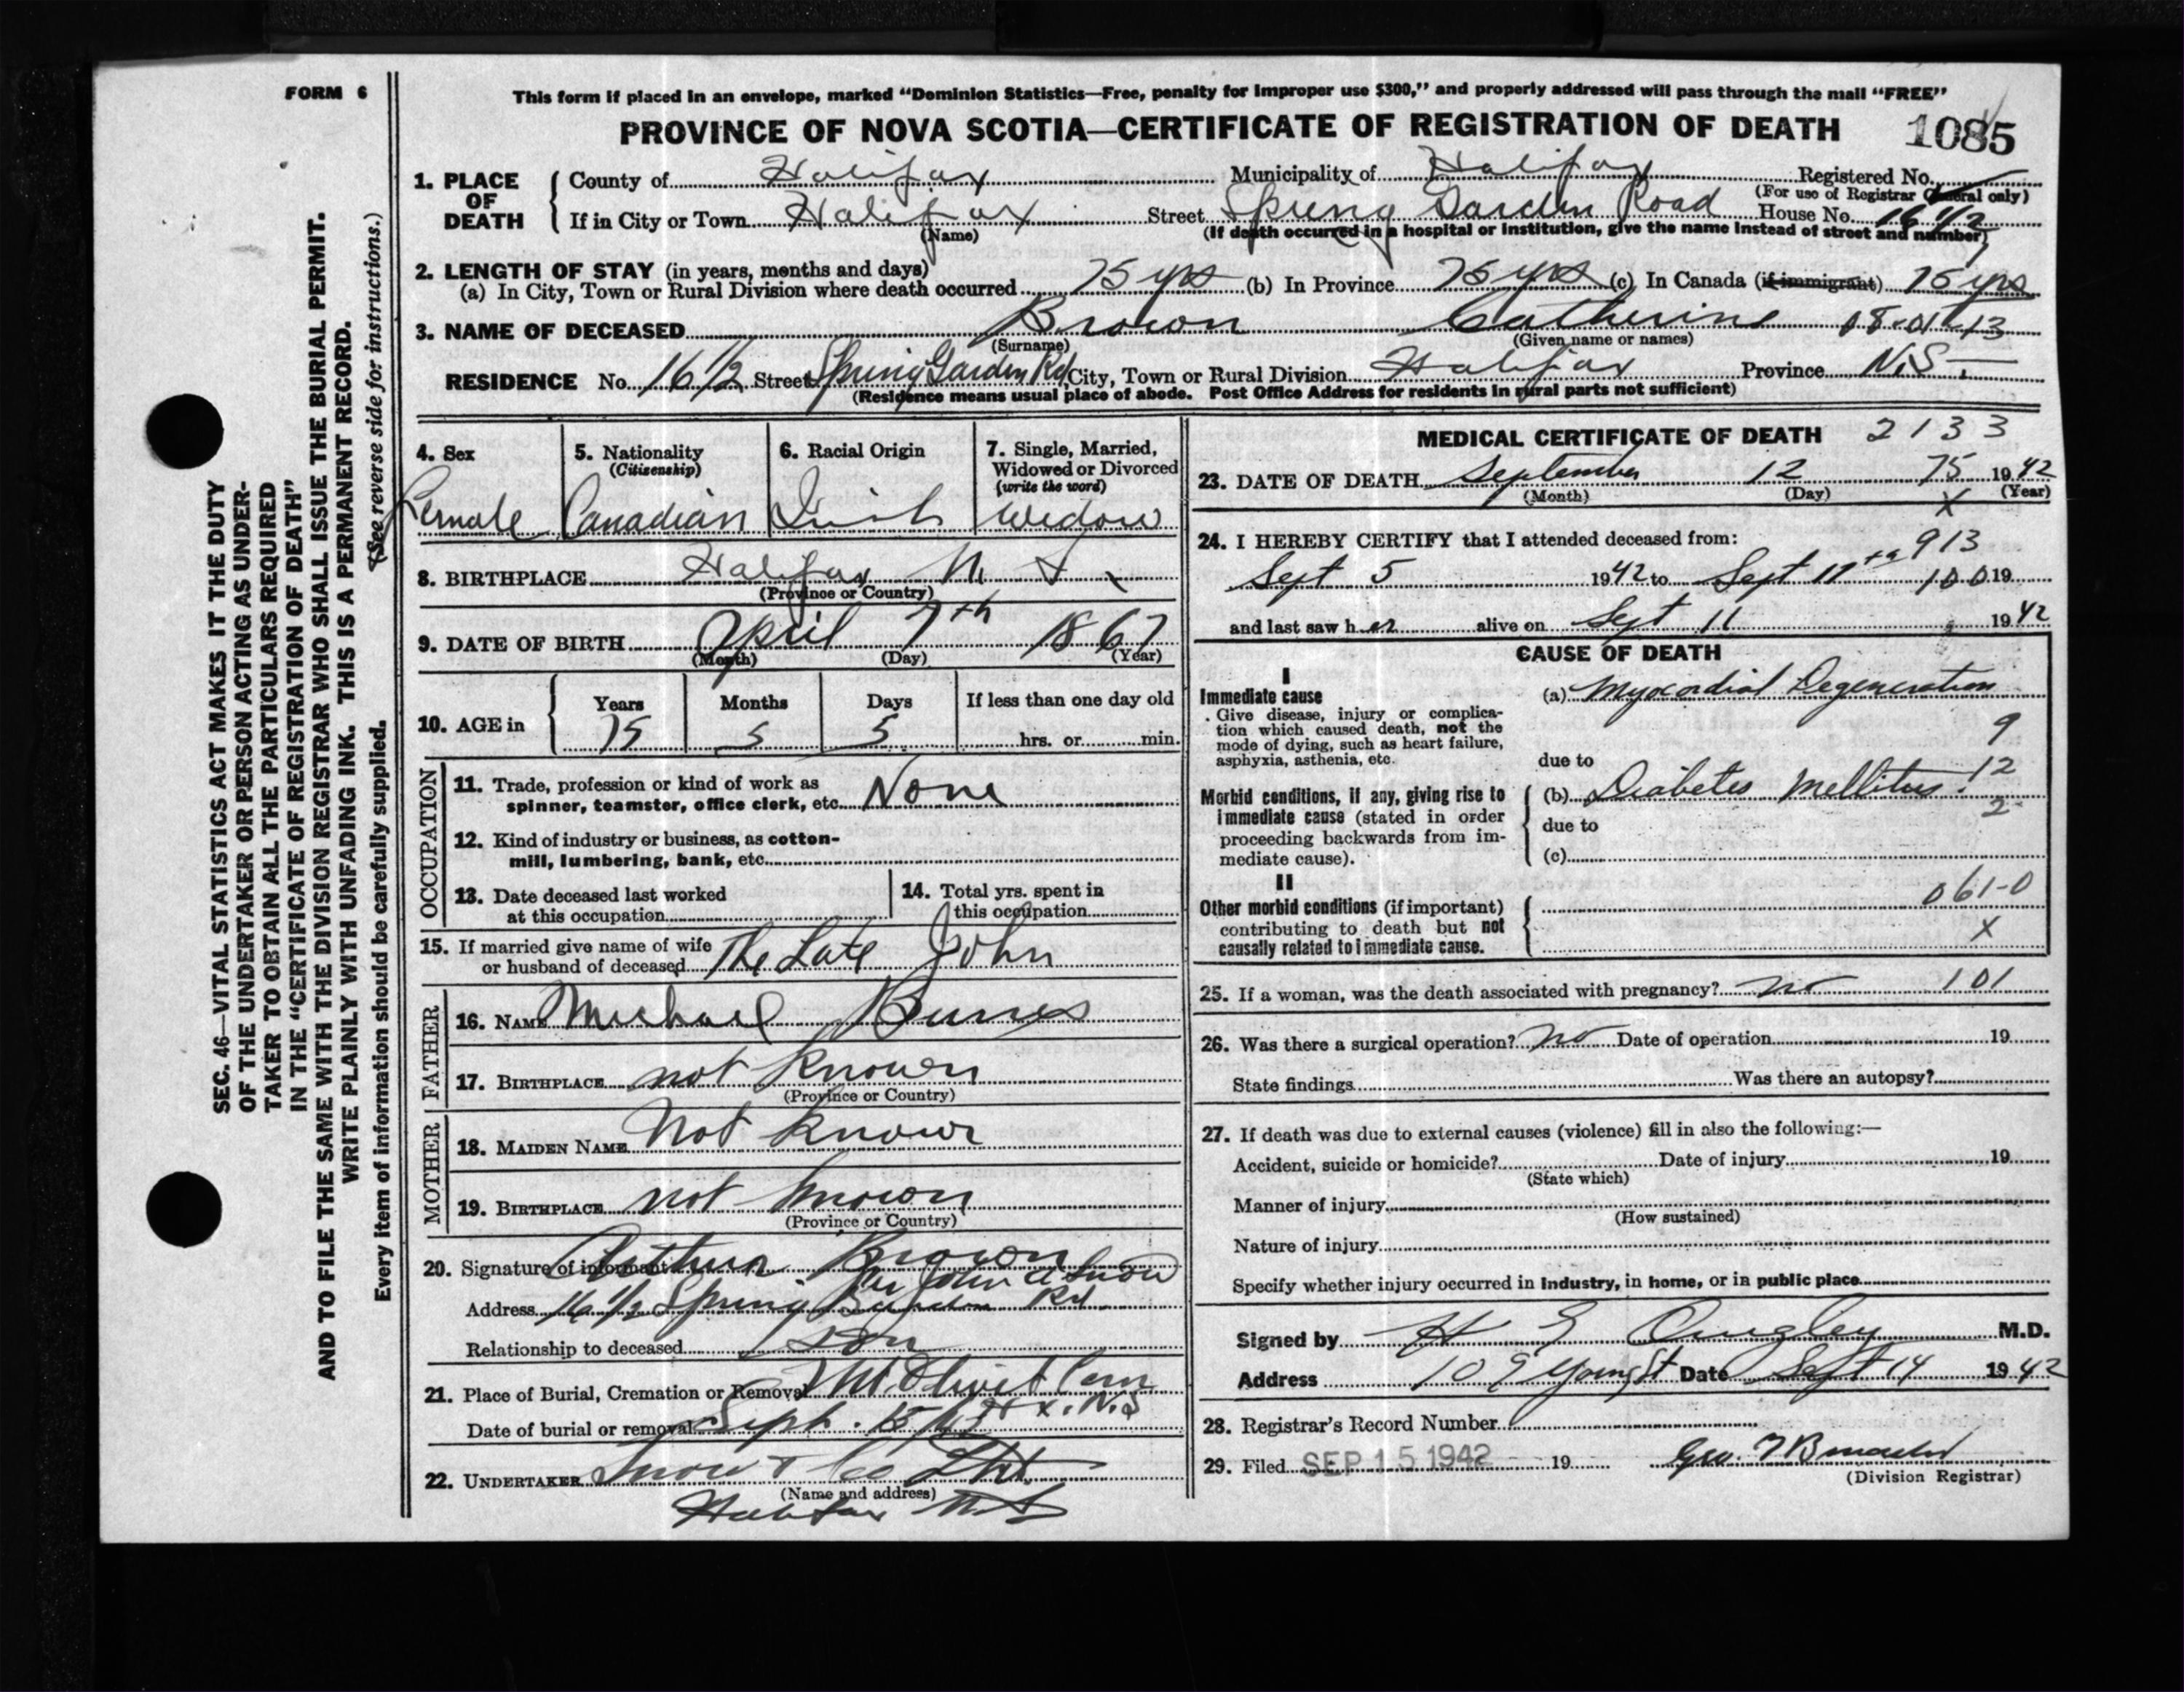 FORM 6
This form if placed in an envelope, marked “Dominion Statistics—Free, penalty for improper use $300,” and properly addressed will pass through the mail “FREE”
PROVINCE OF NOVA SCOTIA—CERTIFICATE OF REGISTRATION OF DEATH 1085
1. PLACE OF DEATH County of Halifax Municipality of Halifax Registered No.
(For use of Registrar General only)
If in City or Town Halifax Street Spring Garden Road House No. 16 1/2
(Name) (If death occurred in a hospital or institution, give the name instead of street and number)
2. LENGTH OF STAY (in years, months and days)
(a) In City, Town or Rural Division where death occurred 75 yrs (b) In Province 75 yrs (c) In Canada (if immigrant) 75 yrs
3. NAME OF DECEASED Brown Catherine
(Surname) (Given name or names)
RESIDENCE No. 16 1/2 Street Spring Garden Rd City, Town or Rural Division Halifax Province N.S.
(Residence means usual place of abode. Post Office Address for residents in rural parts not sufficient)
4. Sex 5. Nationality (Citizenship) 6. Racial Origin 7. Single, Married, Widowed or Divorced (write the word)
Female Canadian Irish Widow
8. BIRTHPLACE Halifax N. S.
(Province or Country)
9. DATE OF BIRTH April 7th 1867
(Month) (Day) (Year)
10. AGE in Years Months Days If less than one day old
75 5 5 hrs. or min.
OCCUPATION
11. Trade, profession or kind of work as
spinner, teamster, office clerk, etc. None
12. Kind of industry or business, as cotton-
mill, lumbering, bank, etc.
13. Date deceased last worked at this occupation 14. Total yrs. spent in this occupation
15. If married give name of wife
or husband of deceased The Late John
FATHER
16. NAME Michael Burns
17. BIRTHPLACE not known
(Province or Country)
MOTHER
18. MAIDEN NAME Not known
19. BIRTHPLACE not known
(Province or Country)
20. Signature of informant Arthur Brown
per John A Snow
Address 16 1/2 Spring Garden Rd
Relationship to deceased Son
21. Place of Burial, Cremation or Removal Mt. Olivet Cem
Hx. N.S
Date of burial or removal Sept. 15
22. UNDERTAKER Snow & Co Ltd.
(Name and address)
Halifax N S
MEDICAL CERTIFICATE OF DEATH 2133
23. DATE OF DEATH September 12 75 1942
(Month) (Day) X (Year)
24. I HEREBY CERTIFY that I attended deceased from: 913
Sept 5 1942 to Sept 100 19
and last saw her alive on Sept 11 1942
CAUSE OF DEATH
I
Immediate cause (a) Myocardial Degeneration
Give disease, injury or complica-
tion which caused death, not the
mode of dying, such as heart failure,
asphyxia, asthenia, etc. due to
9
Morbid conditions, if any, giving rise to (b) Diabetes Mellitus. 12
immediate cause (stated in order due to 2
proceeding backwards from im-
mediate cause). (c)
II
Other morbid conditions (if important) 061-0
contributing to death but not X
causally related to immediate cause.
25. If a woman, was the death associated with pregnancy? no 101
26. Was there a surgical operation? no Date of operation 19
State findings Was there an autopsy?
27. If death was due to external causes (violence) fill in also the following:—
Accident, suicide or homicide? Date of injury 19
(State which)
Manner of injury
(How sustained)
Nature of injury
Specify whether injury occurred in industry, in home, or in public place
Signed by H E M.D.
Address 109 Young St Date Sept 14 1942
28. Registrar's Record Number
29. Filed SEP 15 1942 19 Geo.
(Division Registrar)
SEC. 46—VITAL STATISTICS ACT MAKES IT THE DUTY
OF THE UNDERTAKER OR PERSON ACTING AS UNDER-
TAKER TO OBTAIN ALL THE PARTICULARS REQUIRED
IN THE “CERTIFICATE OF REGISTRATION OF DEATH”
AND TO FILE THE SAME WITH THE DIVISION REGISTRAR WHO SHALL ISSUE THE BURIAL PERMIT.
WRITE PLAINLY WITH UNFADING INK. THIS IS A PERMANENT RECORD.
(See reverse side for instructions.)
Every item of information should be carefully supplied.